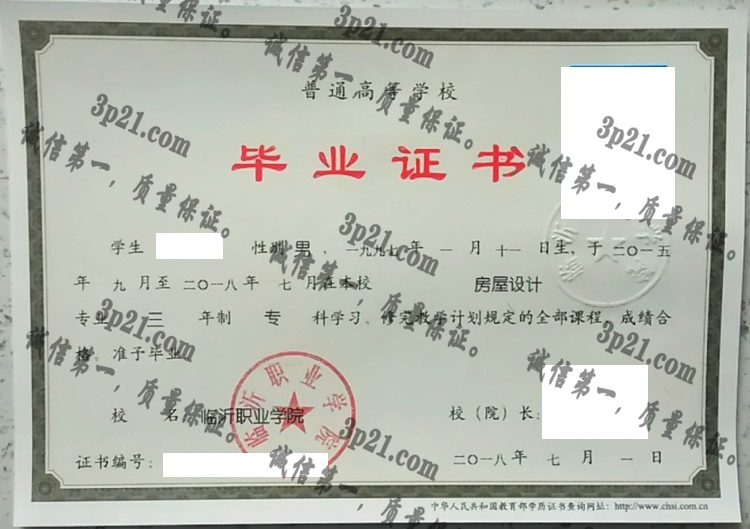 普通高等学校
毕业证书
学生 性别 男 、一九九七年 一 月 十一 日生,于二〇一五
年 九 月至二〇一八年 七 月在本校 房屋设计
专业 三 年制 专 科学习,修完教学计划规定的全部课程,成绩合
格,准予毕业。
校 名 临沂职业学院 校(院)长:
证书编号: 二〇一八年 七 月 一 日
中华人民共和国教育部学历证书查询网址:http://www.chsi.com.cn
临沂职业学院
3p21.com
诚信第一,质量保证。
3p21.com
诚信第一,质量保证。
3p21.com
诚信第一,质量保证。
3p21.com
诚信第一,质量保证。
3p21.com
诚信第一,质量保证。
3p21.com
诚信第一,质量保证。
3p21.com
诚信第一,质量保证。
3p21.com
诚信第一,质量保证。